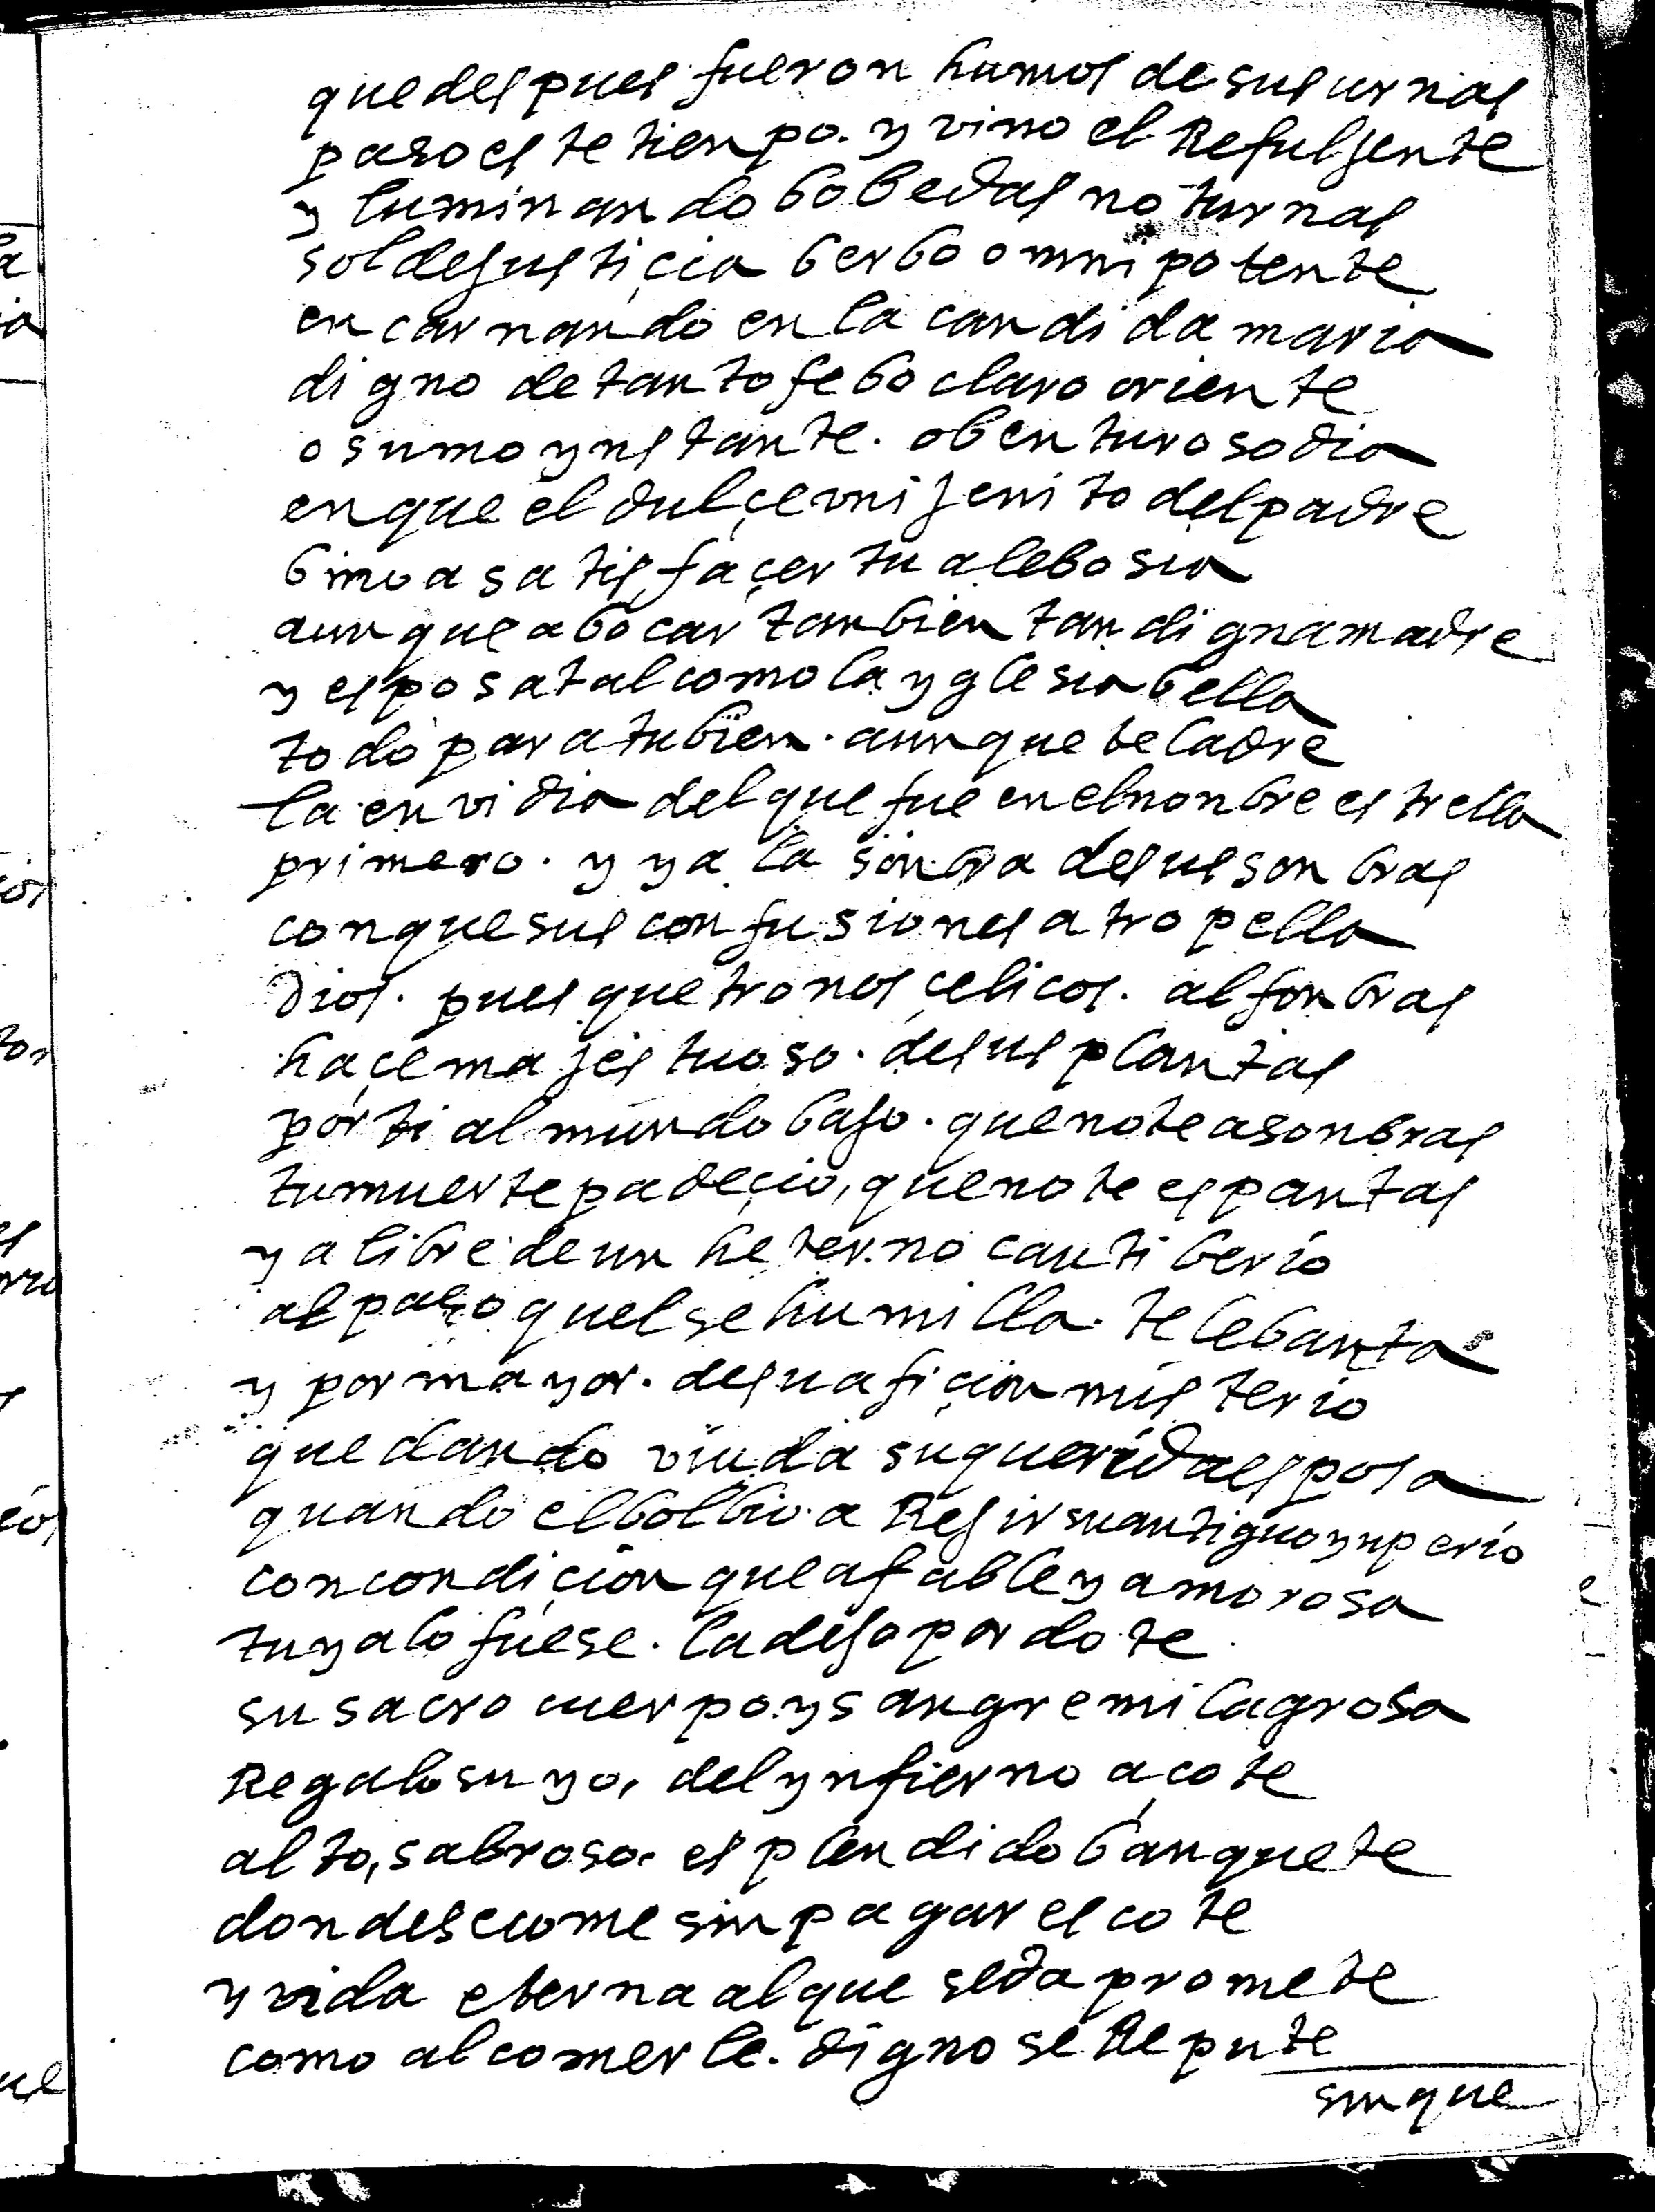 que despues fueron humos de sus urnas
paso este tienpo. y vino el Refuljente
yluminando bobedas noturnas
sol de justiçia berbo omnipotente
encarnando en la candida maria
digno de tanto febo claro oriente
o sumo ynstante. o benturoso dia
en que el dulçe unijenito del padre
bino a satisfaçer tu alebosia
aunque a bocar tanbien tan digna madre
y esposa tal como la yglesia bella
todo para tu bien. aunque te ladre
la envidia del que fue en el nonbre estrella
primero. y ya la sonbra de sus sonbras
con que sus confusiones atropella
dios. pues que tronos çelicos. alfonbras
haçe majestuoso. de sus plantas
por ti al mundo bajo. que no te asonbras
tu muerte padeçio, que no te espantas
ya libre de un heterno cautiberio
al paso quel se humilla. te lebantas
y por mayor. de su afiçion misterio
quedando viuda su querida esposa
quando el bolbio a Rejir su antiguo ynperio
con condiçion que afable y amorosa
tuya lo fuese. la dejo por dote
su sacro cuerpo y sangre milagrosa
Regalo suyo, del ynfierno açote
alto, sabroso. esplendido banquete
donde se come sin pagar escote
y vida eterna al que se da promete
como al comerle. digno se Repute
sin que